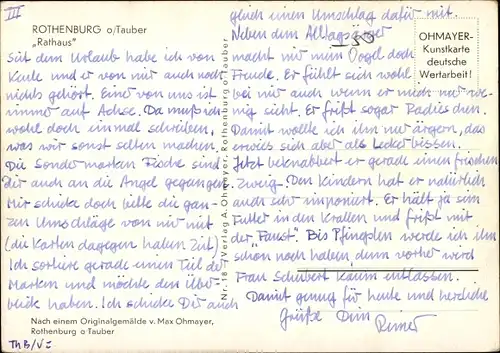 III
ROTHENBURG o/Tauber
„Rathaus"
Seit dem Urlaub habe ich von
Karle und er von mir auch noch
nichts gehört. Eine von uns ist
immer auf Achse. Da muß ich
wohl doch einmal schreiben,
was wir sonst selten machen.
Die Sondermarken Fische sind
Dir auch an die Angel gegangen.
Mir schicke doch bitte die gan-
zen Umschläge von mir mit
(die Karten dagegen haben Zeit)
Ich sortiere gerade einen Teil der
Marken und möchte den Über
blick haben. Ich schicke Dir auch
Nach einem Originalgemälde v. Max Ohmayer,
Rothenburg o Tauber
Th B/V:
Nr. 18 Verlag A. Ohmayer, Rothenburg o Tauber
OHMAYER-
Kunstkarte
deutsche
Wertarbeit!
gleich einen Umschlag dafür mit.
Neben dem Alltagsärger
macht mir mein Vogel doch
Freude. Er fühlt sich wohl
bei mir auch wenn er mich nur we-
nig sieht. Er frißt sogar Radieschen.
Damit wollte ich ihn nur ärgern, das
erwies sich aber als Leckerbissen.
Jetzt beknabbert er gerade einen frischen
Zweig. Den Kindern hat er natürlich
auch sehr imponiert. Er hält ja sein
Futter in den Krallen und frißt mit
der "Faust". Bis Pfingsten werde ich ihn
schon noch haben, denn vorher wird
Frau Schubert kaum entlassen.
Damit genug für heute und herzliche
Grüße Dein
Reiner